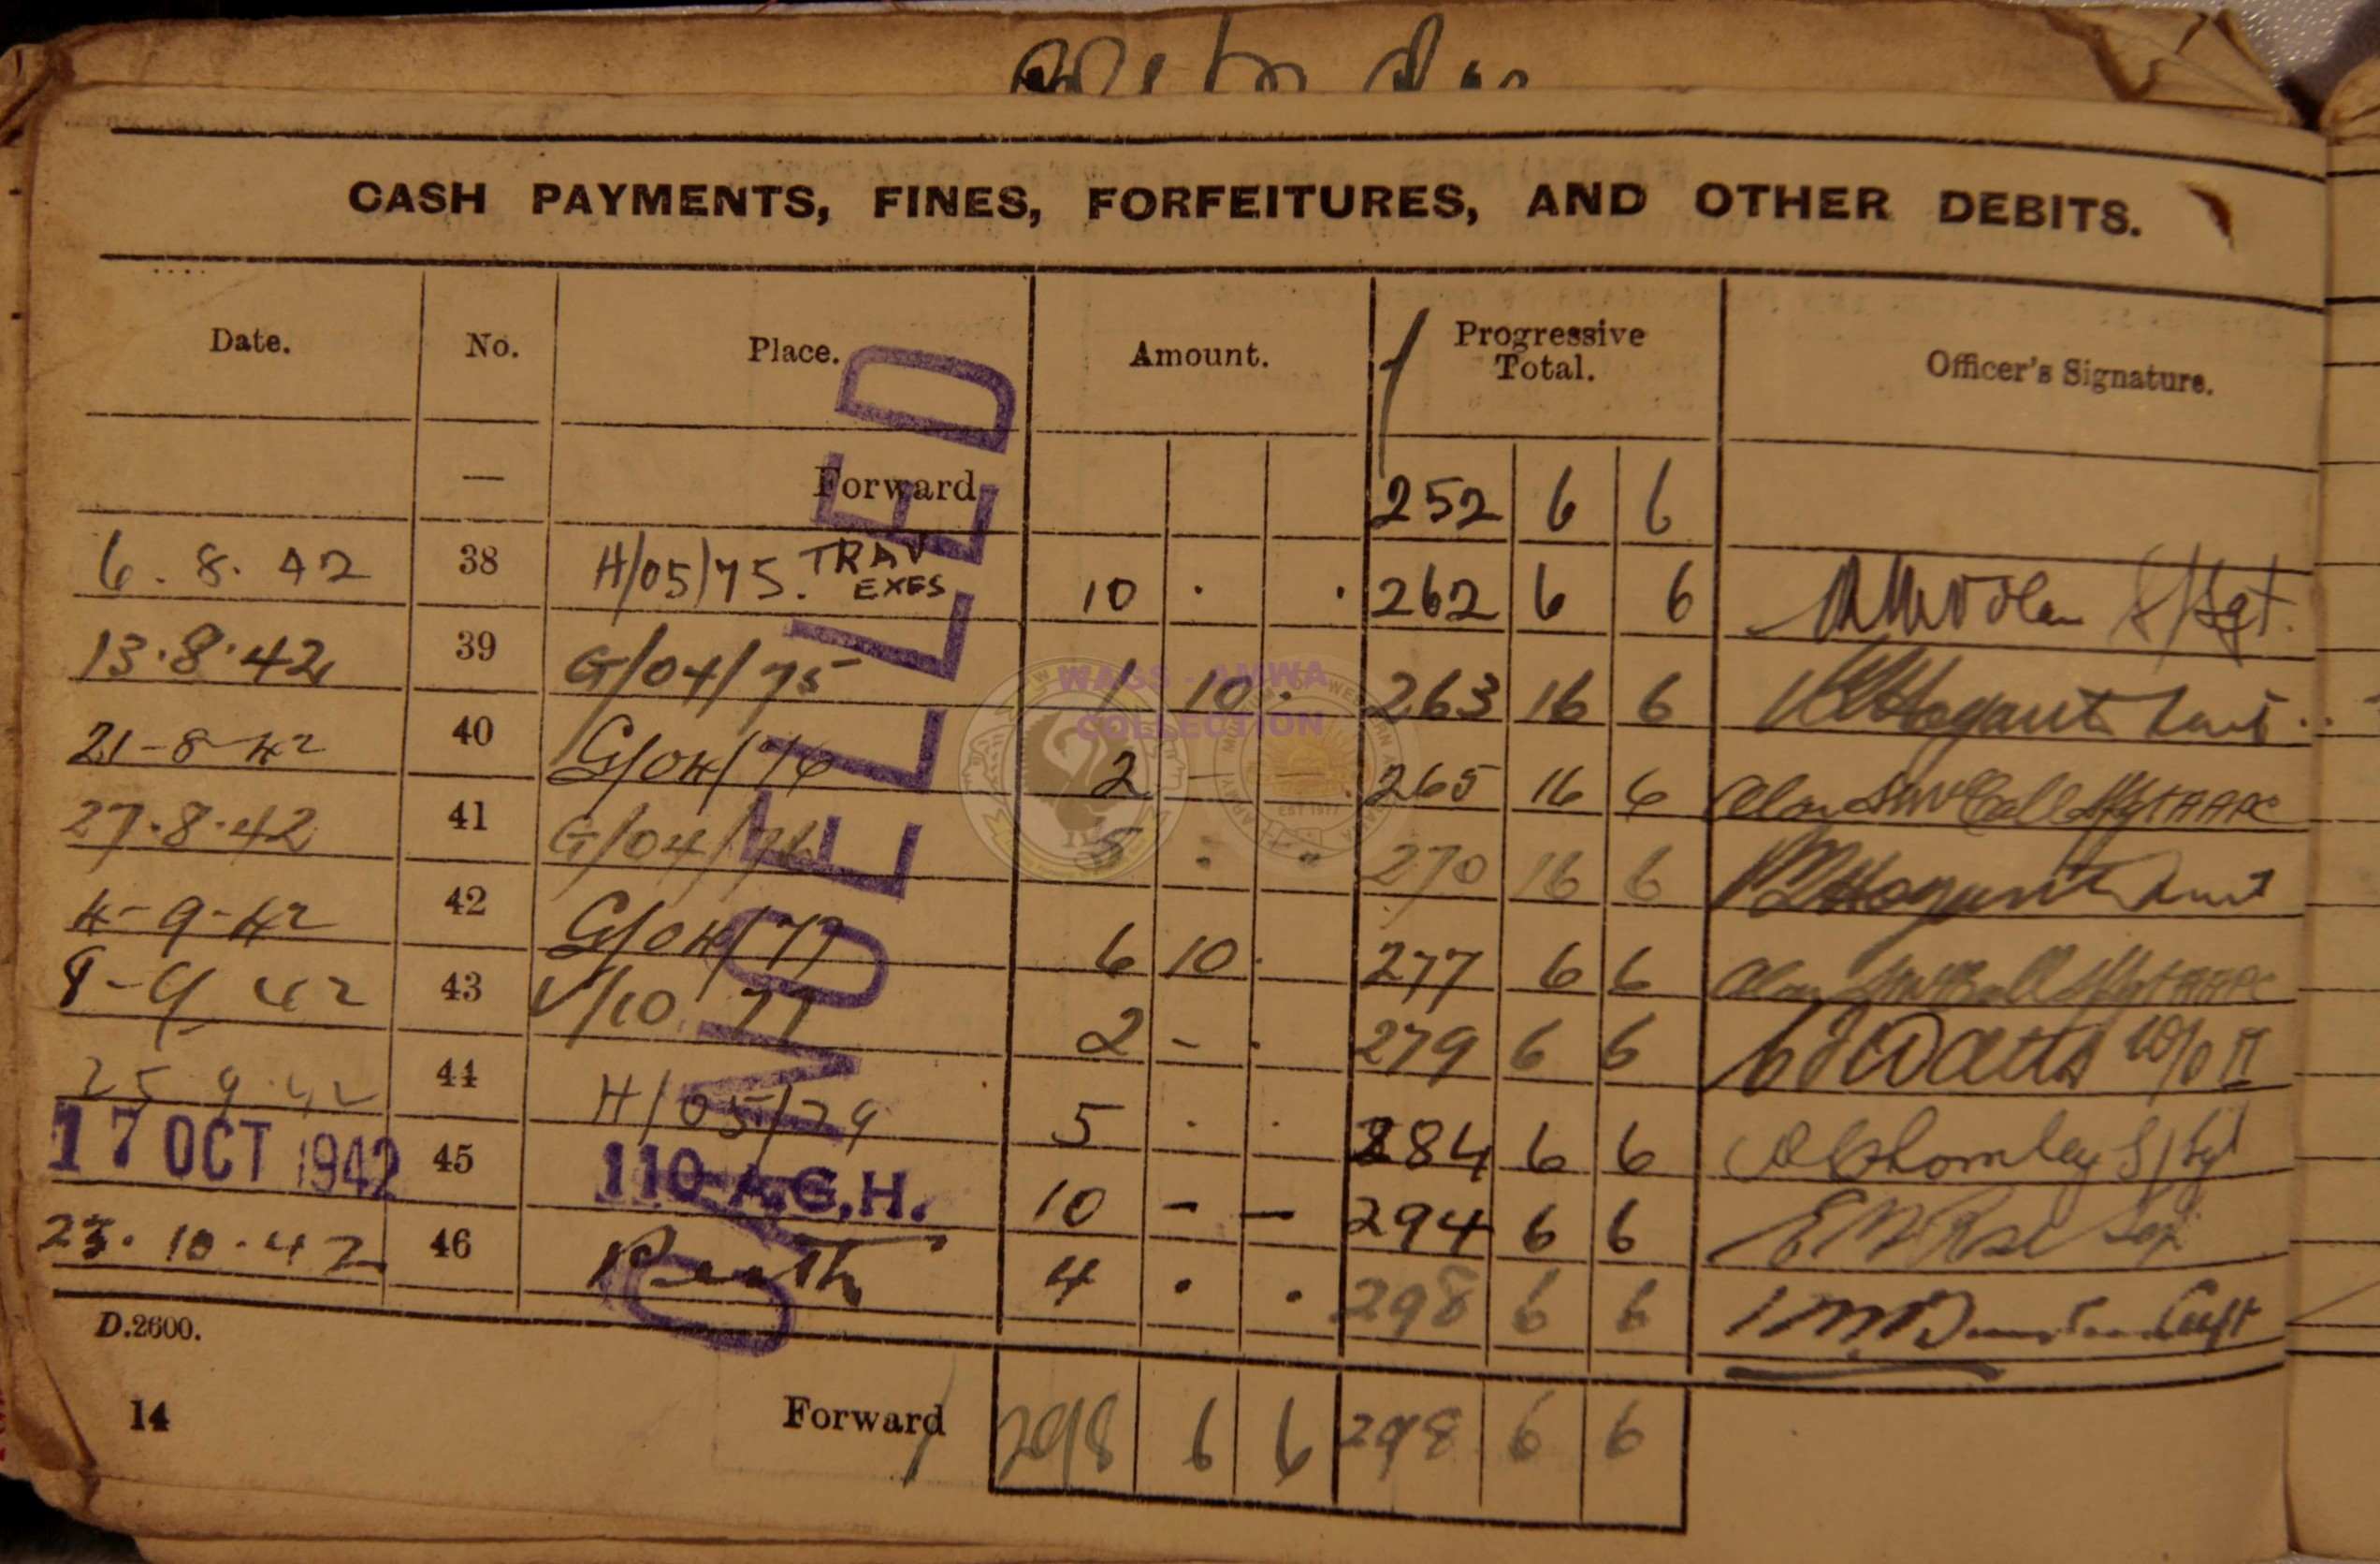 CASH PAYMENTS, FINES, FORFEITURES, AND OTHER DEBITS.
Date. No. Place. Amount. Progressive Total. Officer's Signature.
— Forward 252 6 6
6.8.42 38 H/05/75. TRAV EXES 10 . . 262 6 6 S/Sgt.
13.8.42 39 G/04/75 1 10 . 263 16 6 Lieut.
21-8-42 40 G/04/76 2 — — 265 16 6 Alan S/Sgt AAPC
27.8.42 41 G/04/76 5 . . 270 16 6
4-9-42 42 G/04/77 6 10 . 277 6 6 Alan S/Sgt AAPC
9-9 42 43 V/10 77 2 - . 279 6 6 Watts W/O II
25 9.42 44 H/05/79 5 . . 284 6 6 S/Sgt
17 OCT 1942 45 110 A.G.H. 10 — — 294 6 6
23.10.42 46 Perth 4 . . 298 6 6 Capt
D.2600.
14 Forward 298 6 6 298 6 6
CANCELLED
WAGS - AMWA
COLLECTION
EST 1977